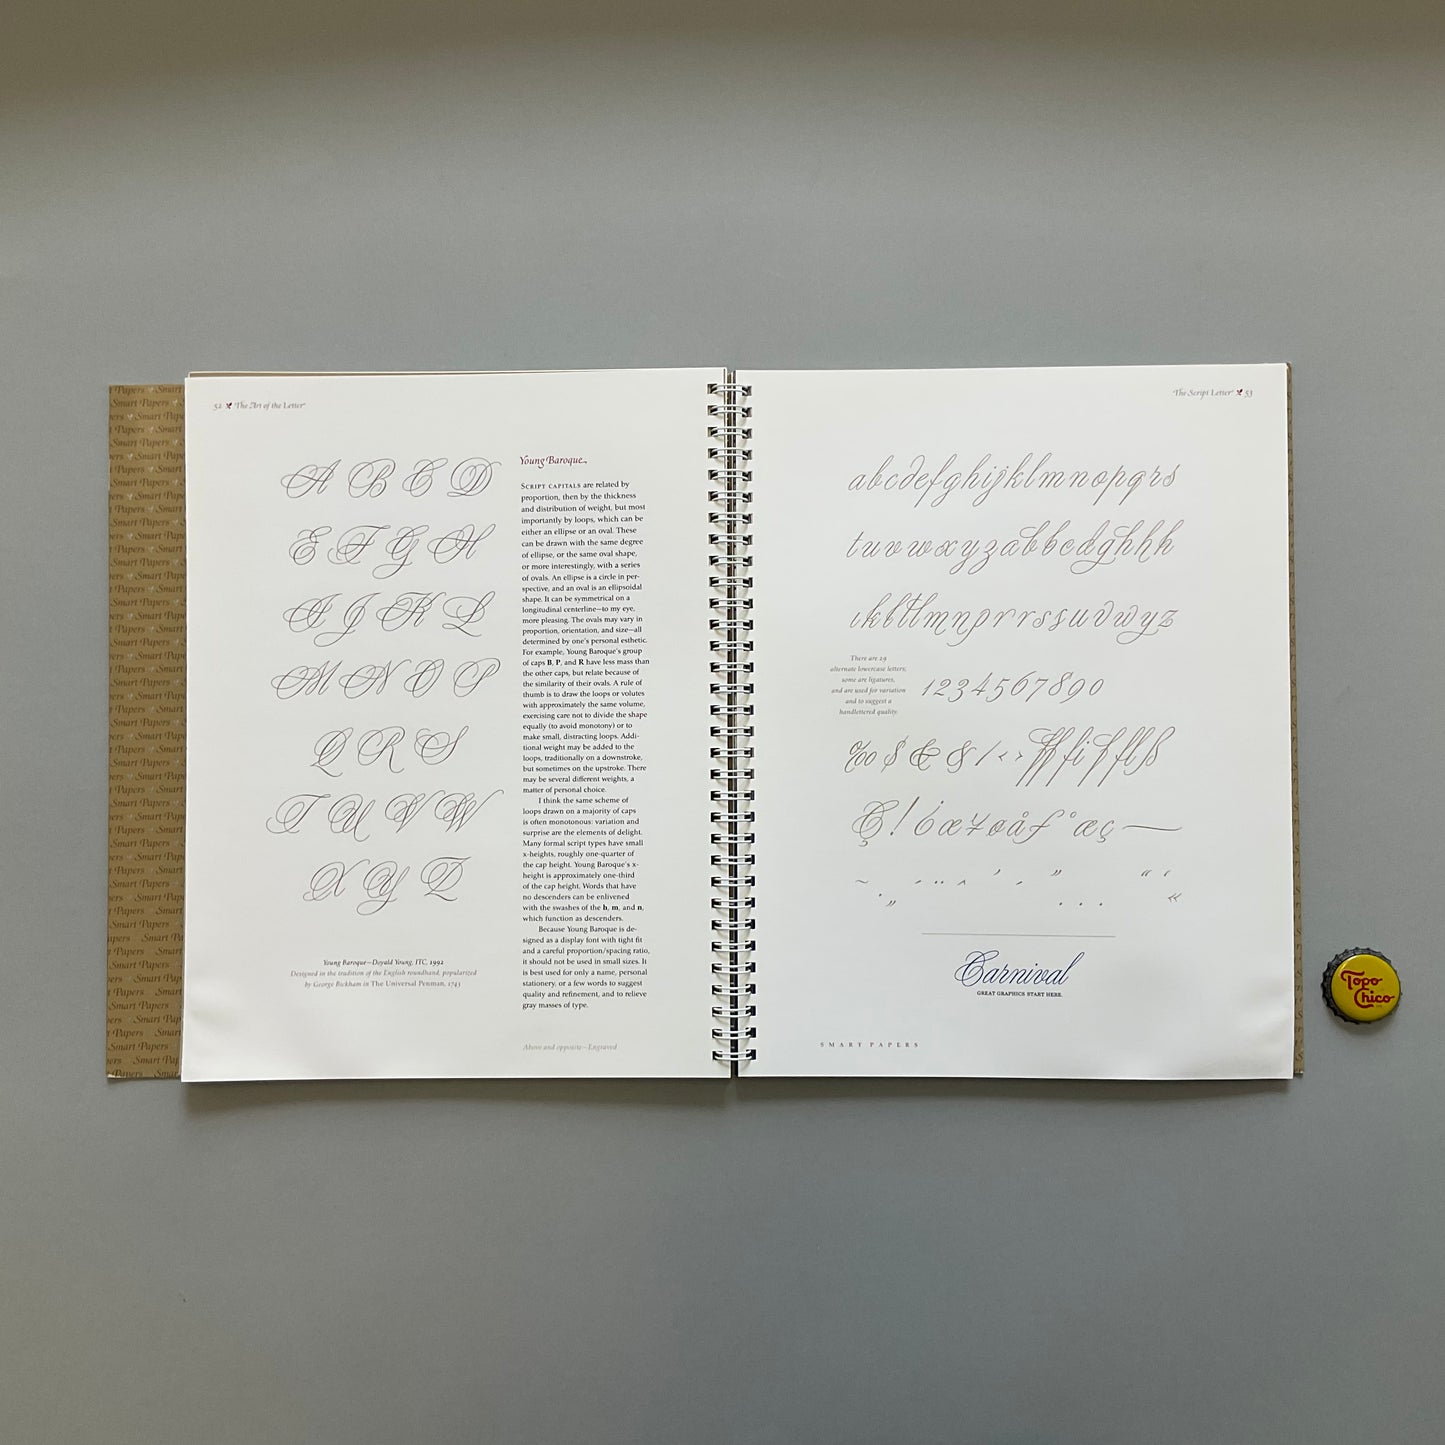 52 The Art of the Letter
A B C D
E F G H
I J K L
M N O P
Q R S
T U V W
X Y Z
Young Baroque—Doyald Young, ITC, 1992
Designed in the tradition of the English roundhand, popularized
by George Bickham in The Universal Penman, 1743
Young Baroque
SCRIPT CAPITALS are related by
proportion, then by the thickness
and distribution of weight, but most
importantly by loops, which can be
either an ellipse or an oval. These
can be drawn with the same degree
of ellipse, or the same oval shape,
or more interestingly, with a series
of ovals. An ellipse is a circle in per-
spective, and an oval is an ellipsoidal
shape. It can be symmetrical on a
longitudinal centerline—to my eye,
more pleasing. The ovals may vary in
proportion, orientation, and size—all
determined by one's personal esthetic.
For example, Young Baroque's group
of caps B, P, and R have less mass than
the other caps, but relate because of
the similarity of their ovals. A rule of
thumb is to draw the loops or volutes
with approximately the same volume,
exercising care not to divide the shape
equally (to avoid monotony) or to
make small, distracting loops. Addi-
tional weight may be added to the
loops, traditionally on a downstroke,
but sometimes on the upstroke. There
may be several different weights, a
matter of personal choice.
I think the same scheme of
loops drawn on a majority of caps
is often monotonous: variation and
surprise are the elements of delight.
Many formal script types have small
x-heights, roughly one-quarter of
the cap height. Young Baroque's x-
height is approximately one-third
of the cap height. Words that have
no descenders can be enlivened
with the swashes of the h, m, and n,
which function as descenders.
Because Young Baroque is de-
signed as a display font with tight fit
and a careful proportion/spacing ratio,
it should not be used in small sizes. It
is best used for only a name, personal
stationery, or a few words to suggest
quality and refinement, and to relieve
gray masses of type.
Above and opposite—Engraved
The Script Letter 53
abcdefghijklmnopqrs
tuvwxyzabbcdghhh
kltlmnprrssuvwyz
There are 29
alternate lowercase letters;
some are ligatures,
and are used for variation
and to suggest a
handlettered quality.
1234567890
‰ $ & & / ‹ › ff fi fl ß
Ç ! ó æ ø å f ° œ ç —
Carnival
GREAT GRAPHICS START HERE.
SMART PAPERS
Smart Papers
Topo
Chico